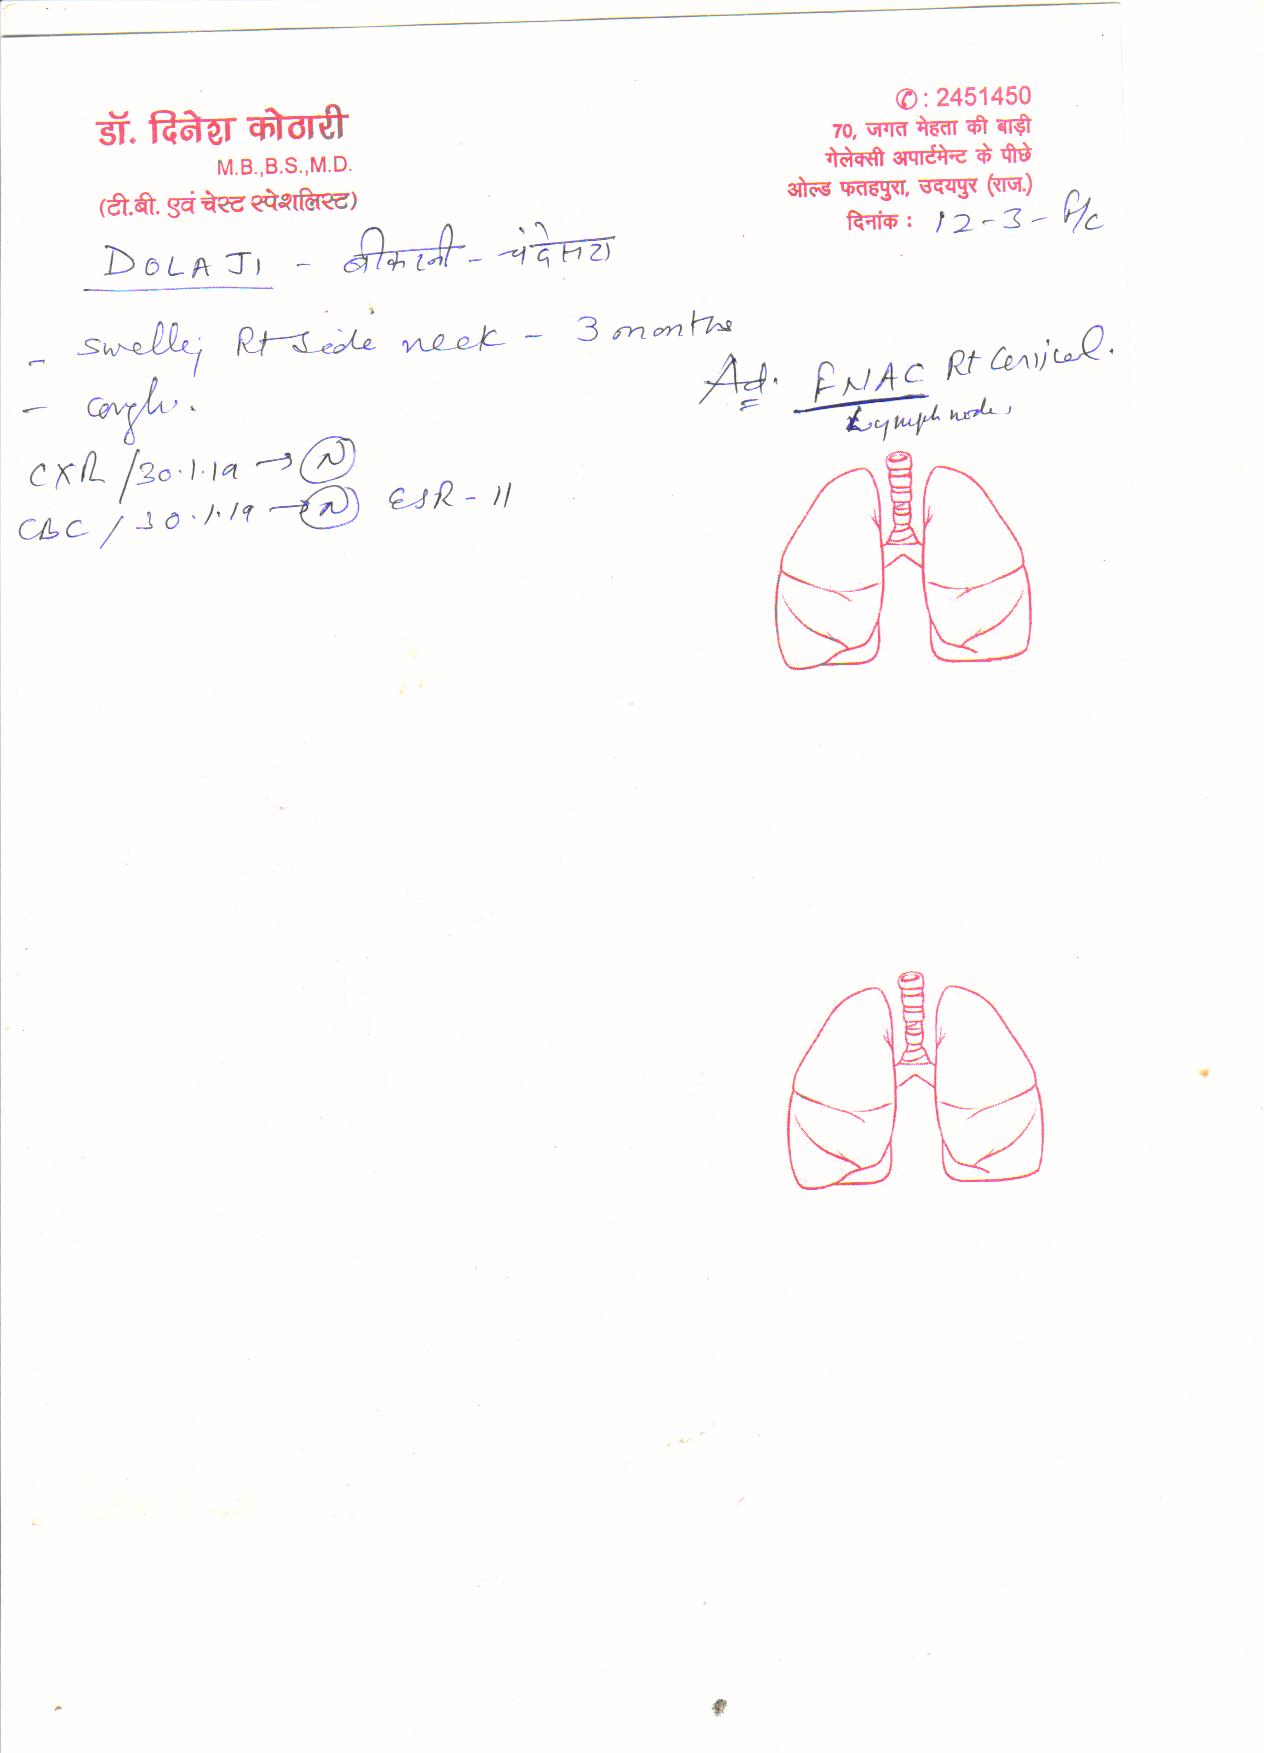 डॉ. दिनेश कोठारी
M.B.,B.S.,M.D.
(टी.बी. एवं चेस्ट स्पेशलिस्ट)
✆ : 2451450
70, जगत मेहता की बाड़ी
गेलेक्सी अपार्टमेन्ट के पीछे
ओल्ड फतहपुरा, उदयपुर (राज.)
दिनांक : 12-3-
DOLA JI -
- swelling Rt side neck - 3 months
- cough.
CXR / 30.1.19 → N
CBC / 30.1.19 → N ESR - 11
Ad. FNAC Rt Cervical.
Lymph node,